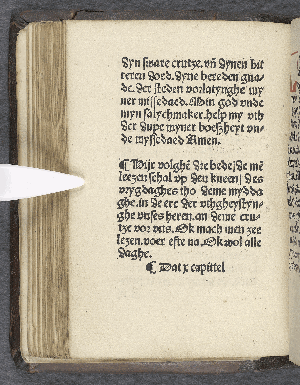 dyn sware crutze. vñ dynen bit
teren doed. dyne bereden gna-
de. der steden vorlatynghe my
ner missedaed. Min god vnde
myn salychmaker. help my vth
der dupe myner boeßheyt vn-
de myssedaed Amen.
¶ Dijr volghē dre bede / de mē
leezen schal vp den kneen / des
vrygdaghes tho deme mydda
ghe. in de ere der vthgheystyn-
ghe vnses heren. an deme cru-
tze vor vns. Ok mach men zee
lezen. voer efte na. Ok wol alle
daghe.
¶ Dat x capittel